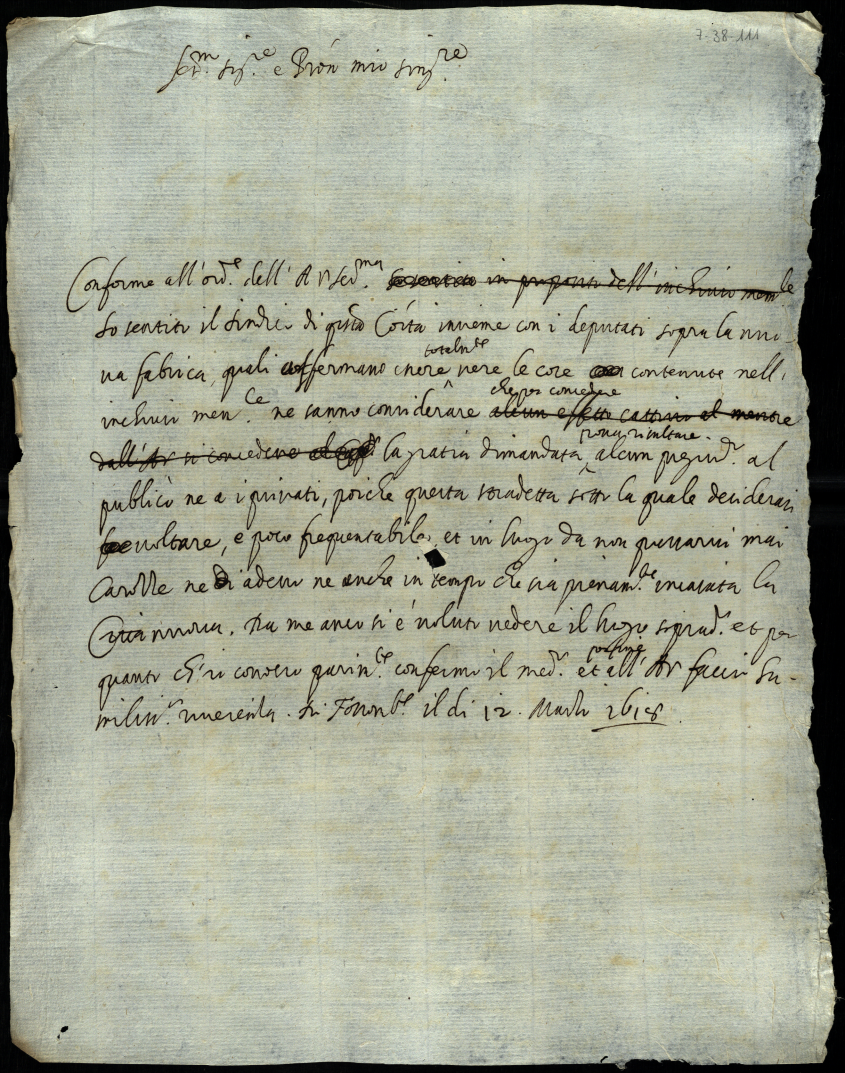 7-38-111
Ser.m sig.re e Pron mio sing.re
Conforme all'ord.e dell' A V Ser.ma in proposito dell' inchiuso mem.le
ho sentito il sindico di questa Città insieme con i deputati sopra la nuo-
va fabrica, quali affermano essere totalm.te vere le cose contenute nell'
inchiuso mem.le ne sanno considerare che per concedere alcun effetto cattivo al mentre
dall'AV si concedere la gratia dimandata possa risultare alcun pregiud.o al
publico ne a i privati, poiche questa stradetta sotto la quale desiderasi
voltare, e poco frequentabile, et in luogo da non passarvi mai
Carozze ne di adesso ne anche in tempo che sia pienam.te incasata la
Città nuova. Da me anco si é voluto vedere il luogo soprad.o et per
quanto ch'io conosco parim.te confermo il med.o et all' AV faccio hu-
miliss.a riverenza. Di il di 12. Marzo 1618